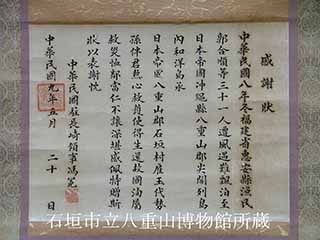 感謝狀
中華民國八年冬福建省惠安縣漁民
郭合順等三十一人遭風遇難飄泊至
日本帝國沖繩縣八重山郡尖閣列島
內和洋島承
日本帝國八重山郡石垣村雇玉代勢
孫伴君熱心救護使得生還故國洵屬
救災恤鄰當仁不讓深堪感佩特贈斯
狀以表謝忱
中華民國駐長崎領事馮冕
中華民國九年五月二十日
石垣市立八重山博物館所蔵